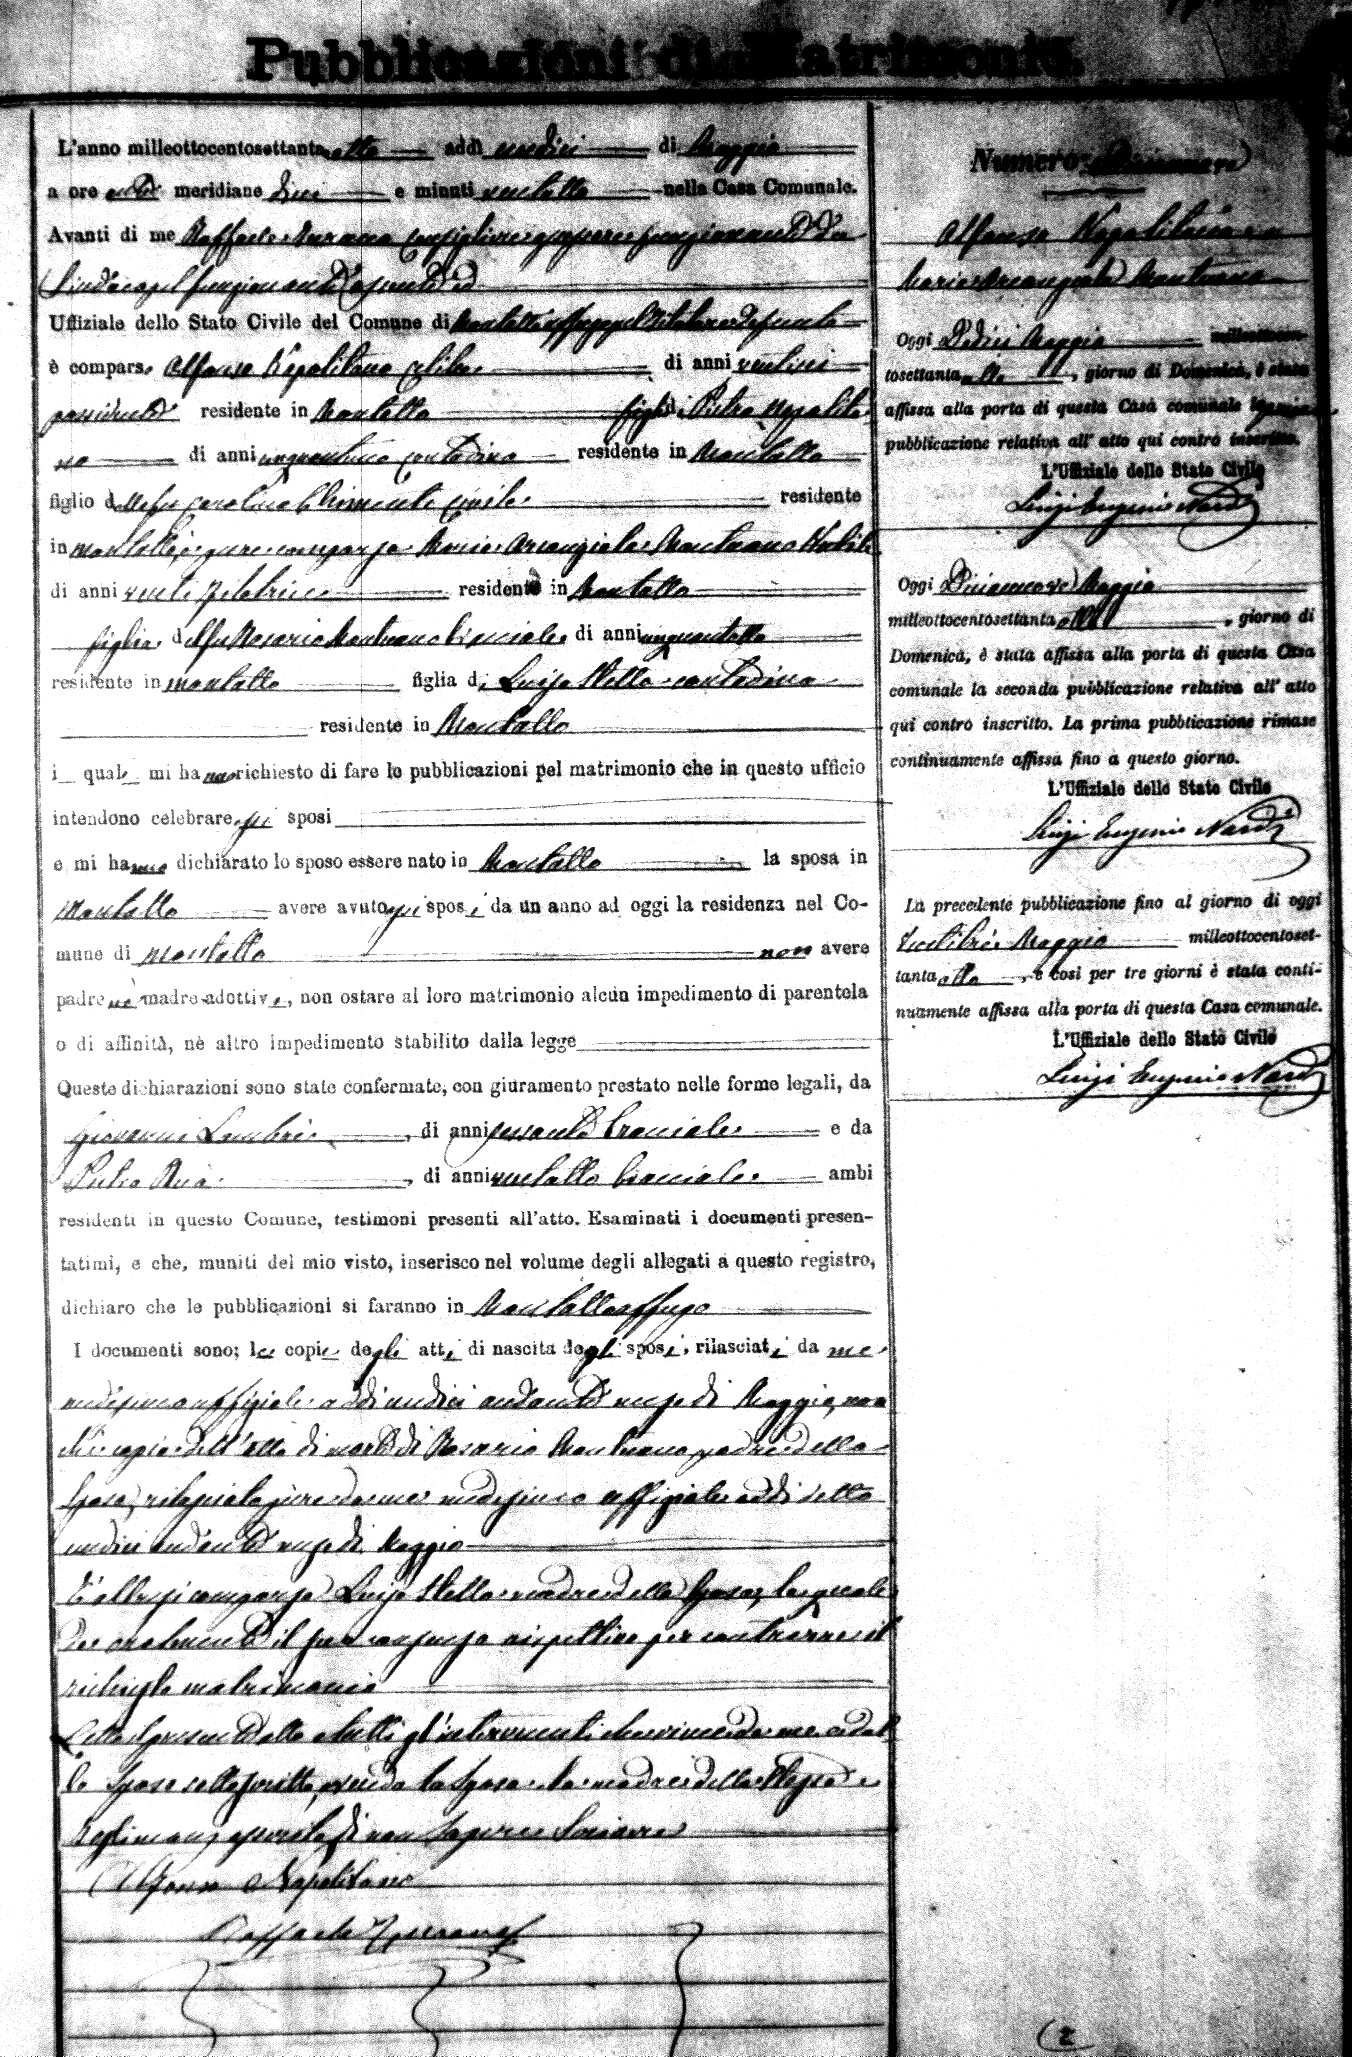 Pubblicazioni di Matrimonio.
L'anno milleottocentosettantaotto addì undici di Maggio
a ore anti meridiane dieci e minuti ventotto nella Casa Comunale.
Avanti di me Raffaele consigliere funzionante da
Sindaco pel funzionante assente ed
Uffiziale dello Stato Civile del Comune di Montalto Uffugo pel titolare defunto
è comparso Alfonso Napolitano celibe di anni ventisei
possidente residente in Montalto figlio di Pietro Napolita-
no di anni cinquantuno contadino residente in Montalto
figlio della fu Carolina Chimenti civile residente
in Montalto, è pure comparsa Maria Arcangiola Mantuano nubile
di anni venti filatrice residente in Montalto
figlia del fu Rosario Mantuano bracciale di anni cinquantotto
residente in Montalto figlia di Luisa Stella contadina
residente in Montalto
i quali mi hanno richiesto di fare le pubblicazioni pel matrimonio che in questo ufficio
intendono celebrare essi sposi
e mi hanno dichiarato lo sposo essere nato in Montalto la sposa in
Montalto avere avuto essi sposi da un anno ad oggi la residenza nel Co-
mune di Montalto non avere
padre nè madre adottivi, non ostare al loro matrimonio alcun impedimento di parentela
o di affinità, nè altro impedimento stabilito dalla legge
Queste dichiarazioni sono state confermate, con giuramento prestato nelle forme legali, da
Giovanni, di anni sessanta bracciale e da
Pietro, di anni ventotto bracciale ambi
residenti in questo Comune, testimoni presenti all'atto. Esaminati i documenti presen-
tatimi, e che, muniti del mio visto, inserisco nel volume degli allegati a questo registro,
dichiaro che le pubblicazioni si faranno in Montalto Uffugo
I documenti sono; le copie degli atti di nascita degli sposi, rilasciati da me
medesimo uffiziale addì undici andante mese di Maggio, non
chè copia dell'atto di morte di Rosario Mantuano padre della
sposa, rilasciata pure da me medesimo uffiziale addì detto
undici andante mese di Maggio
È altresì comparsa Luisa Stella madre della sposa, la quale
dà oralmente il suo consenso rispettivo per contrarre il
richiesto matrimonio
Letto il presente atto a tutti gl'intervenuti viene da me e dal
lo sposo sottoscritto, avendo la sposa la madre della stessa e
testimoni asserito di non sapere scrivere
Alfonso Napolitano
Raffaele
Numero Diciannove
Alfonso Napolitano e
Maria Arcangiola Mantuano
Oggi Dodici Maggio milleottocen-
tosettantaotto, giorno di Domenica, è stata
affissa alla porta di questa Casa comunale la prima
pubblicazione relativa all'atto qui contro inscritto.
L'Uffiziale dello Stato Civile
Luigi Eugenio Nardi
Oggi Diciannove Maggio
milleottocentosettantaotto, giorno di
Domenica, è stata affissa alla porta di questa Casa
comunale la seconda pubblicazione relativa all'atto
qui contro inscritto. La prima pubblicazione rimase
continuamente affissa fino a questo giorno.
L'Uffiziale dello Stato Civile
Luigi Eugenio Nardi
La precedente pubblicazione fino al giorno di oggi
Ventitré Maggio milleottocentoset-
tantaotto, e così per tre giorni è stata conti-
nuamente affissa alla porta di questa Casa comunale.
L'Uffiziale dello Stato Civile
Luigi Eugenio Nardi
(2